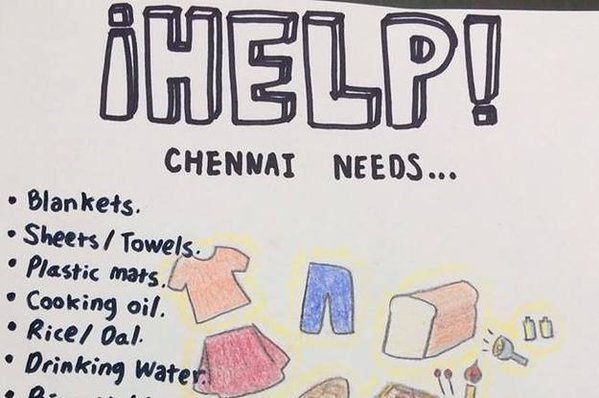 ¡HELP!
CHENNAI NEEDS...
• Blankets.
• Sheets / Towels.
• Plastic mats.
• Cooking oil.
• Rice / Dal.
• Drinking Water.